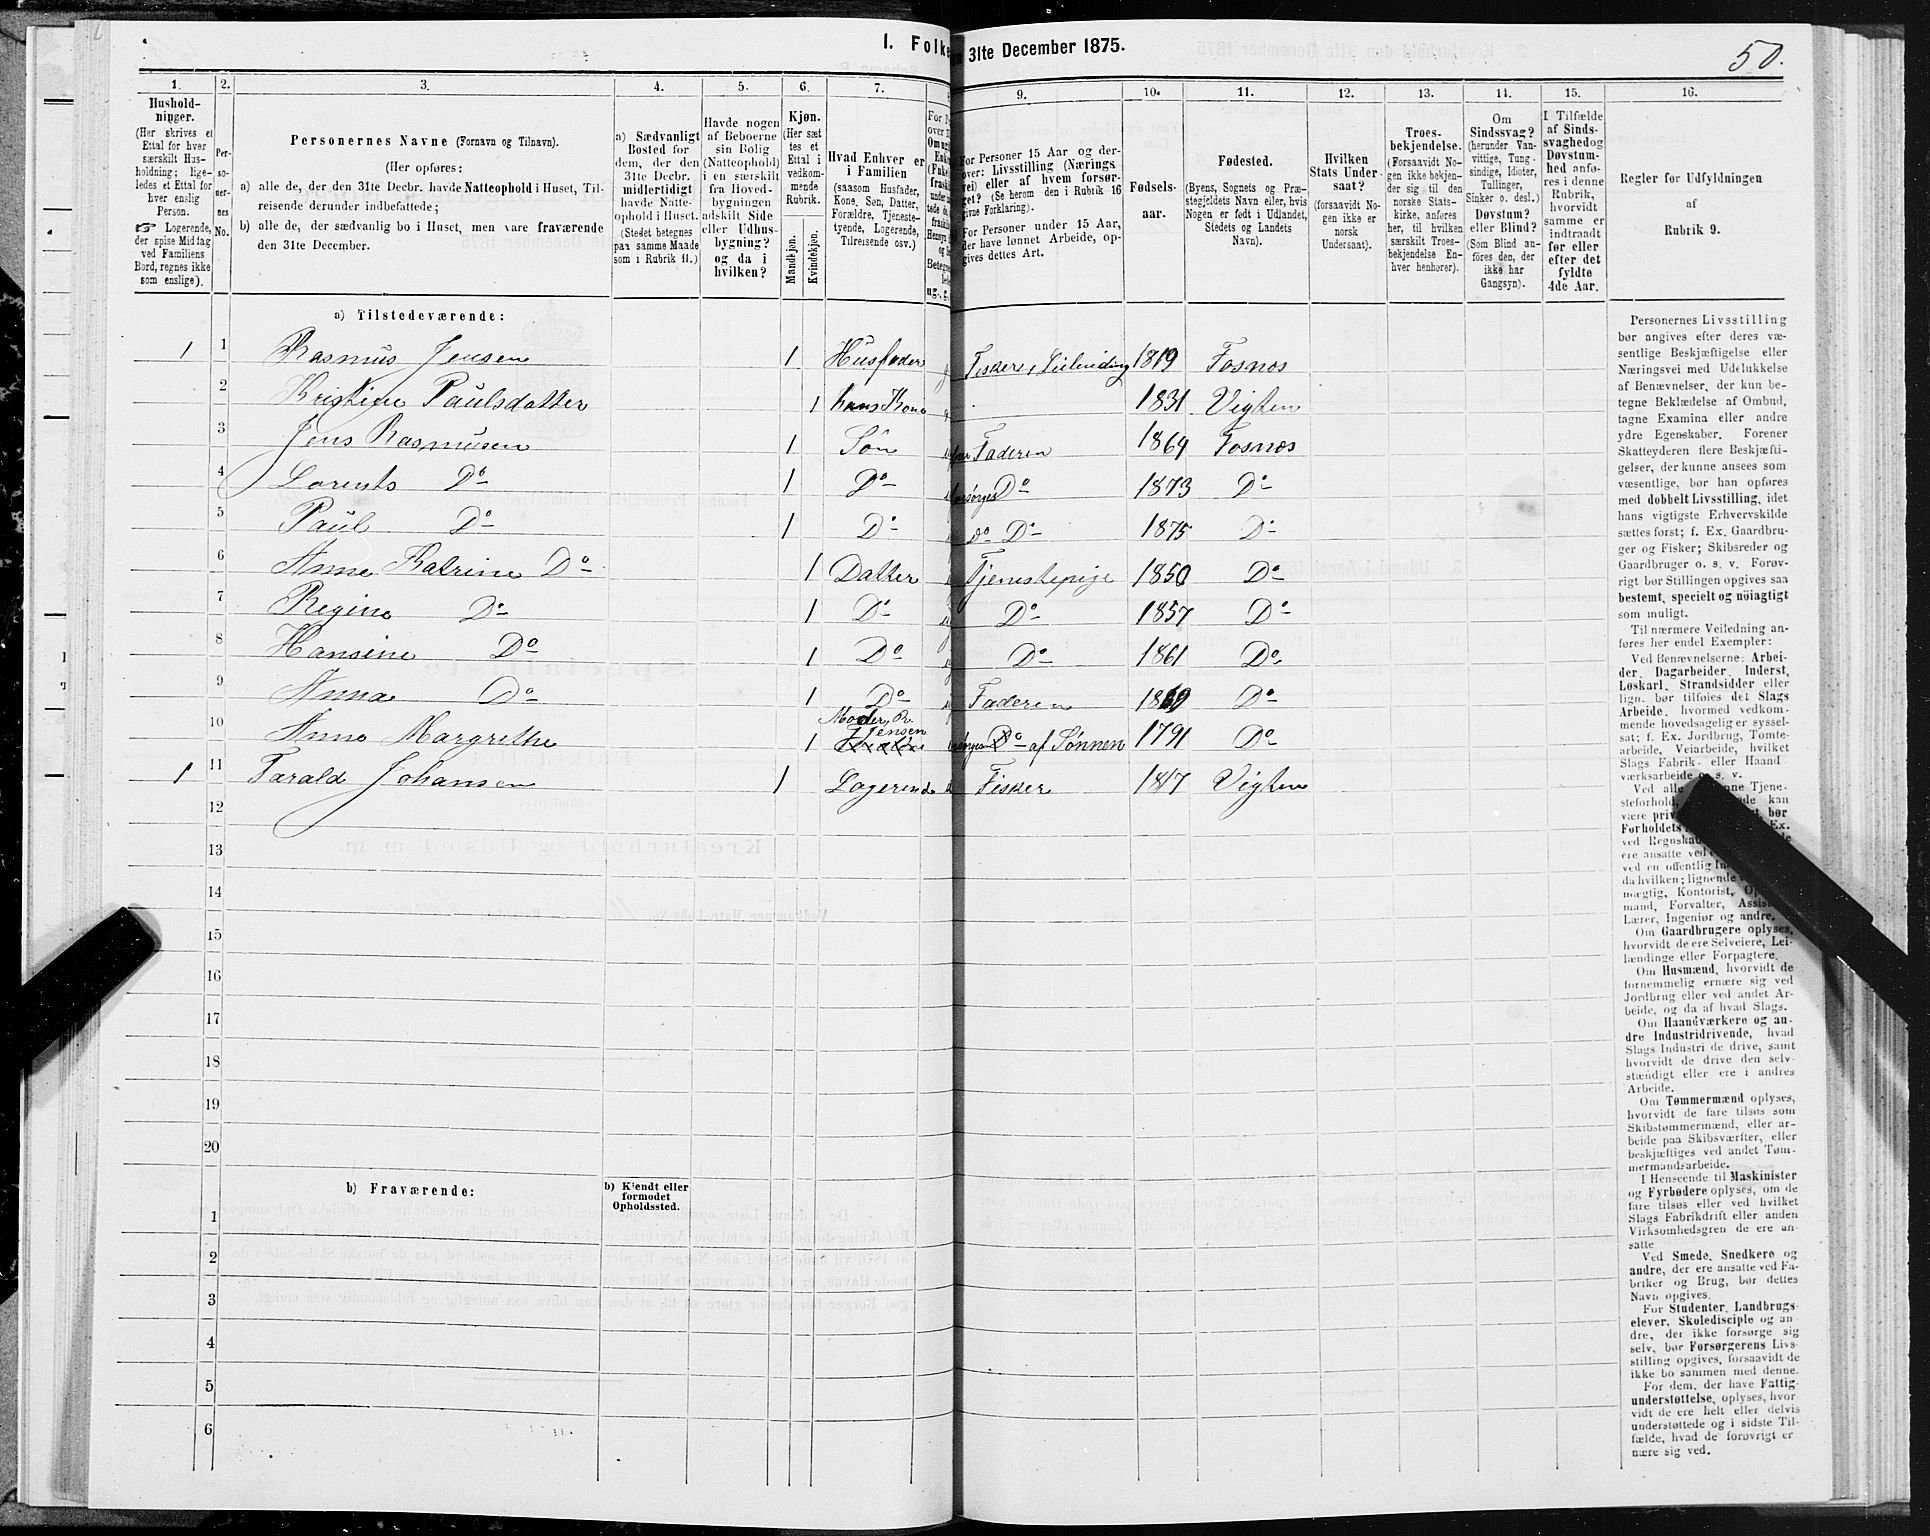 I. Folke
31te December 1875.
50.
1.
2.
3.
4.
5.
6.
7.
9.
10.
11.
12.
13.
14.
15.
16.
Hushold-
ninger.
(Her skrives et
Ettal for hver
særskilt Hus-
holdning; lige-
ledes et Ettal for
hver enslig
Person.
☞ Logerende,
der spise Middag
ved Familiens
Bord, regnes ikke
som enslige).
Per-
so-
ner-
nes
No.
Personernes Navne (Fornavn og Tilnavn).
(Her opføres:
a) alle de, der den 31te Decbr. havde Natteophold i Huset, Til-
reisende derunder indbefattede;
b) alle de, der sædvanlig bo i Huset, men vare fraværende
den 31te December.
a) Sædvanligt
Bosted for
dem, der den
31te Decbr.
midlertidigt
havde Natte-
ophold i Huset.
(Stedet betegnes
paa samme Maade
som i Rubrik 11.)
Havde nogen
af Beboerne
sin Bolig
(Natteophold)
i en særskilt
fra Hoved-
bygningen
adskilt Side
eller Udhus-
bygning?
og da i
hvilken?
Kjøn.
(Her sæt
tes et
Ettal i
vedkom-
mende
Rubrik.
Mandkjøn.
Kvindekjøn.
Hvad Enhver er
i Familien
(saasom Husfader,
Kone, Søn, Datter,
Forældre, Tjeneste-
tyende, Logerende,
Tilreisende osv.)
For Personer 15 Aar og der-
over: Livsstilling (Nærings
vei) eller af hvem forsør-
get? (Se herom den i Rubrik 16
givne Forklaring).
For Personer under 15 Aar,
der have lønnet Arbeide, op-
gives dettes Art.
Fødsels-
aar.
Fødested.
(Byens, Sognets og Præ-
stegjeldets Navn eller, hvis
Nogen er født i Udlandet,
Stedets og Landets
Navn).
Hvilken
Stats Under-
saat?
(forsaavidt No-
gen ikke er
norsk
Undersaat).
Troes-
bekjendelse.
(Forsaavidt No-
gen ikke bekjen-
der sig til den
norske Stats-
kirke, anføres
her, til hvilken
særskilt Troes-
bekjendelse En-
hver henhører).
Om
Sindssvag?
(herunder Van-
vittige, Tung-
sindige, Idioter,
Tullinger,
Sinker o. desl.)
Døvstum?
eller Blind?
(Som Blind an-
føres den, der
ikke har
Gangsyn).
I Tilfælde
af Sinds-
svaghed og
Døvstum-
hed anfø-
res i denne
Rubrik,
hvorvidt
samme er
indtraadt
før eller
efter det
fyldte
4de Aar.
Regler for Udfyldningen
af
Rubrik 9.
a) Tilstedeværende:
1 1 Rasmus Jensen 1 Husfader Fisker, Leilending 1819 Fosnos
2 Kristine Paulsdatter 1 hans Kone 1831 Vigten
3 Jens Rasmusen 1 Søn Faderen 1864 Fosnos
4 Lorents Do 1 Do forsørges Do 1873 Do
5 Paul Do 1 Do Do Do 1875 Do
6 Anne Katrine Do 1 Datter Tjenestepige 1850 Do
7 Regine Do 1 Do Do 1857 Do
8 Hansine Do 1 Do Do 1861 Do
9 Anna Do 1 Do Faderen 1869 Do
10 Anne Margrethe 1 Moder, R. Jensen Do af Sønnen 1791 Do
1 11 Tarald Johansen 1 Logerende Fisker 1817 Vigten
12
13
14
15
16
17
18
19
20
b) Fraværende:
b) Kjendt eller
formodet
Opholdssted.
1
2
3
4
5
6
Personernes Livsstilling
bør angives efter deres væ-
sentlige Beskjæftigelse eller
Næringsvei med Udelukkelse
af Benævnelser, der kun be-
tegne Beklædelse af Ombud,
tagne Examina eller andre
ydre Egenskaber. Forener
Skatteyderen flere Beskjæfti-
gelser, der kunne ansees som
væsentlige, bør han opføres
med dobbelt Livsstilling, idet
hans vigtigste Erhvervskilde
sættes først; f. Ex. Gaardbru-
ger og Fisker; Skibsreder og
Gaardbruger o. s. v. Forøv-
rigt bør Stillingen opgives saa
bestemt, specielt og nøiagtigt
som muligt.
Til nærmere Veiledning an-
føres her endel Exempler:
Ved Benævnelserne: Arbei-
der, Dagarbeider, Inderst,
Løskarl, Strandsidder eller
lign. bør tilføies det Slags
Arbeide, hvormed vedkom-
mende hovedsagelig er syssel-
sat; f. Ex. Jordbrug, Tomte-
arbeide, Veiarbeide, hvilket
Slags Fabrik- eller Haand
værksarbeide o. s. v.
Ved alle Tjene-
steforhold, kan
være bør
Forholdets Ex.
ved
ere ansatte ved
ved en offentlig
da hvilken; lignende
mægtig, Kontorist,
mand, Forvalter,
Lærer, Ingeniør og andre.
Om Gaardbrugere oplyses,
hvorvidt de ere Selveiere, Lei-
lændinge eller Forpagtere.
Om Husmænd, hvorvidt de
fornemmelig ernære sig ved
Jordbrug eller ved andet Ar-
beide, og da af hvad Slags.
Om Haandværkere og an-
dre Industridrivende, hvad
Slags Industri de drive, samt
hvorvidt de drive den selv-
stændigt eller ere i andres
Arbeide.
Om Tømmermænd oplyses,
hvorvidt de fare tilsøs som
Skibstømmermænd, eller ar-
beide paa Skibsværfter, eller
beskjæftiges ved andet Tøm-
mermandsarbeide.
I Henseende til Maskinister
og Fyrbødere oplyses, om de
fare tilsøs eller ved hvilket
Slags Fabrikdrift eller anden
Virksomhedsgren de ere an-
satte
Ved Smede, Snedkere og
andre, der ere ansatte ved Fa-
briker og Brug, bør dettes
Navn opgives.
For Studenter, Landbrugs
elever, Skoledisciple og an-
dre, der ikke forsørge sig
selv, bør Forsørgerens Livs-
stilling opgives, forsaavidt de
ikke bo sammen med denne.
For dem, der have Fattig-
understøttelse, oplyses, hvor
vidt de ere helt eller delvis
understøttede og i sidste Til-
fælde, hvad de forøvrigt er
nære sig ved.